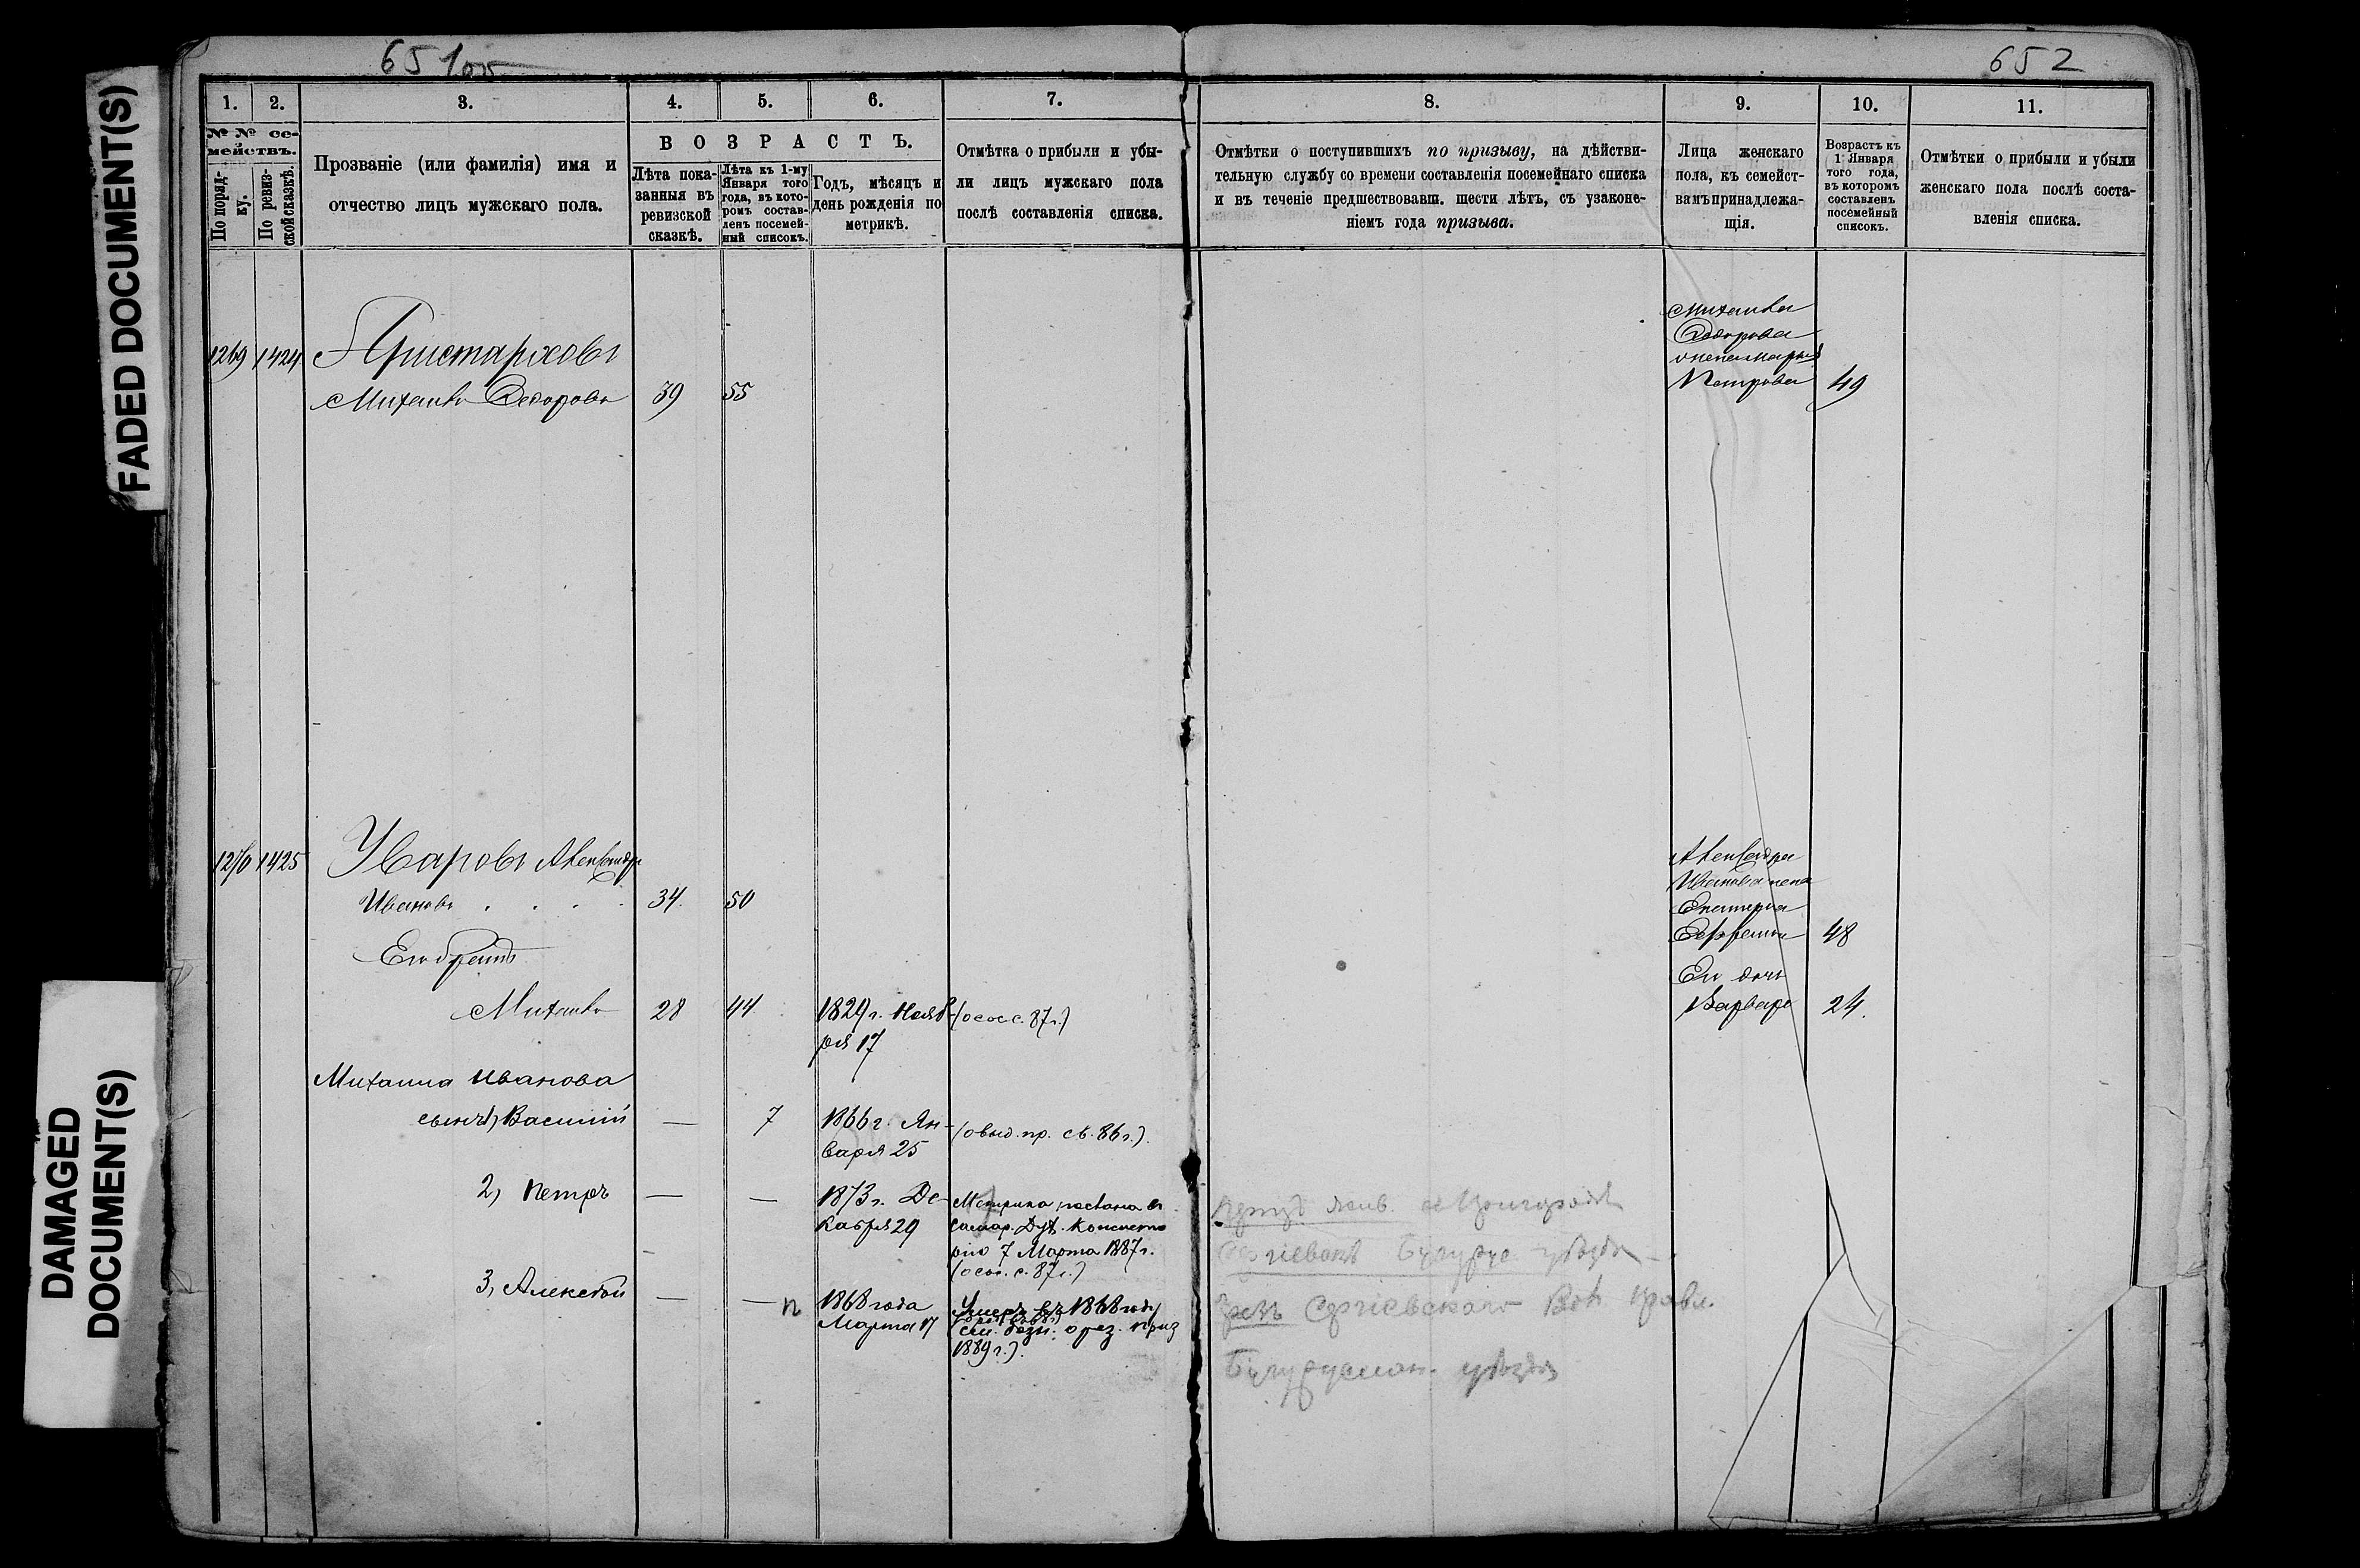 651об
652
FADED DOCUMENT(S)
DAMAGED
DOCUMENT(S)
1.
2.
3.
4.
5.
6.
7.
8.
9.
10.
11.
№ № се-
мействъ.
По поряд-
ку.
По ревиз-
ской сказкѣ.
Прозваніе (или фамилія) имя и
отчество лицъ мужскаго пола.
ВОЗРАСТЪ.
Лѣта пока-
занныя въ
ревизской
сказкѣ.
Лѣта къ 1-му
Января того
года, въ кото-
ромъ состав-
ленъ посемей-
ный списокъ.
Годъ, мѣсяцъ и
день рожденія по
метрикѣ.
Отмѣтка о прибыли и убы-
ли лицъ мужскаго пола
послѣ составленія списка.
Отмѣтки о поступившихъ по призыву, на дѣйстви-
тельную службу со времени составленія посемейнаго списка
и въ теченіе предшествовавш. шести лѣтъ, съ узаконе-
ніемъ года призыва.
Лица женскаго
пола, къ семейст-
вамъ принадлежа-
щія.
Возрастъ къ
1 Января
того года,
въ которомъ
составленъ
посемейный
списокъ.
Отмѣтки о прибыли и убыли
женскаго пола послѣ соста-
вленія списка.
1269 1424 Аристарховъ
Михаилъ Федоровъ 39 55
Михаила
Федорова
жена Марья
Петрова 49
1270 1425 Уваровъ Александръ
Ивановъ 34. 50
Его братъ
Михаилъ 28 44 1829 г. Нояб-
ря 17
Михаила Иванова
сынъ 1, Василий — 7 1866 г. Ян-
варя 25
2, Петръ — — 1873 г. Де-
кабря 29
Метрика послана въ
Самар. Дух. Консисто
рію 7 Марта 1887 г.
3, Алексѣй — — 1868 года
Марта 17
Умеръ въ 1868 году
1889 г.).
Александра
Иванова жена
Екатерина
48
Ея дочь
Варвара 24.
уѣзда
Сергіевскаго Вол правл.
Бугуруслан. уѣзда